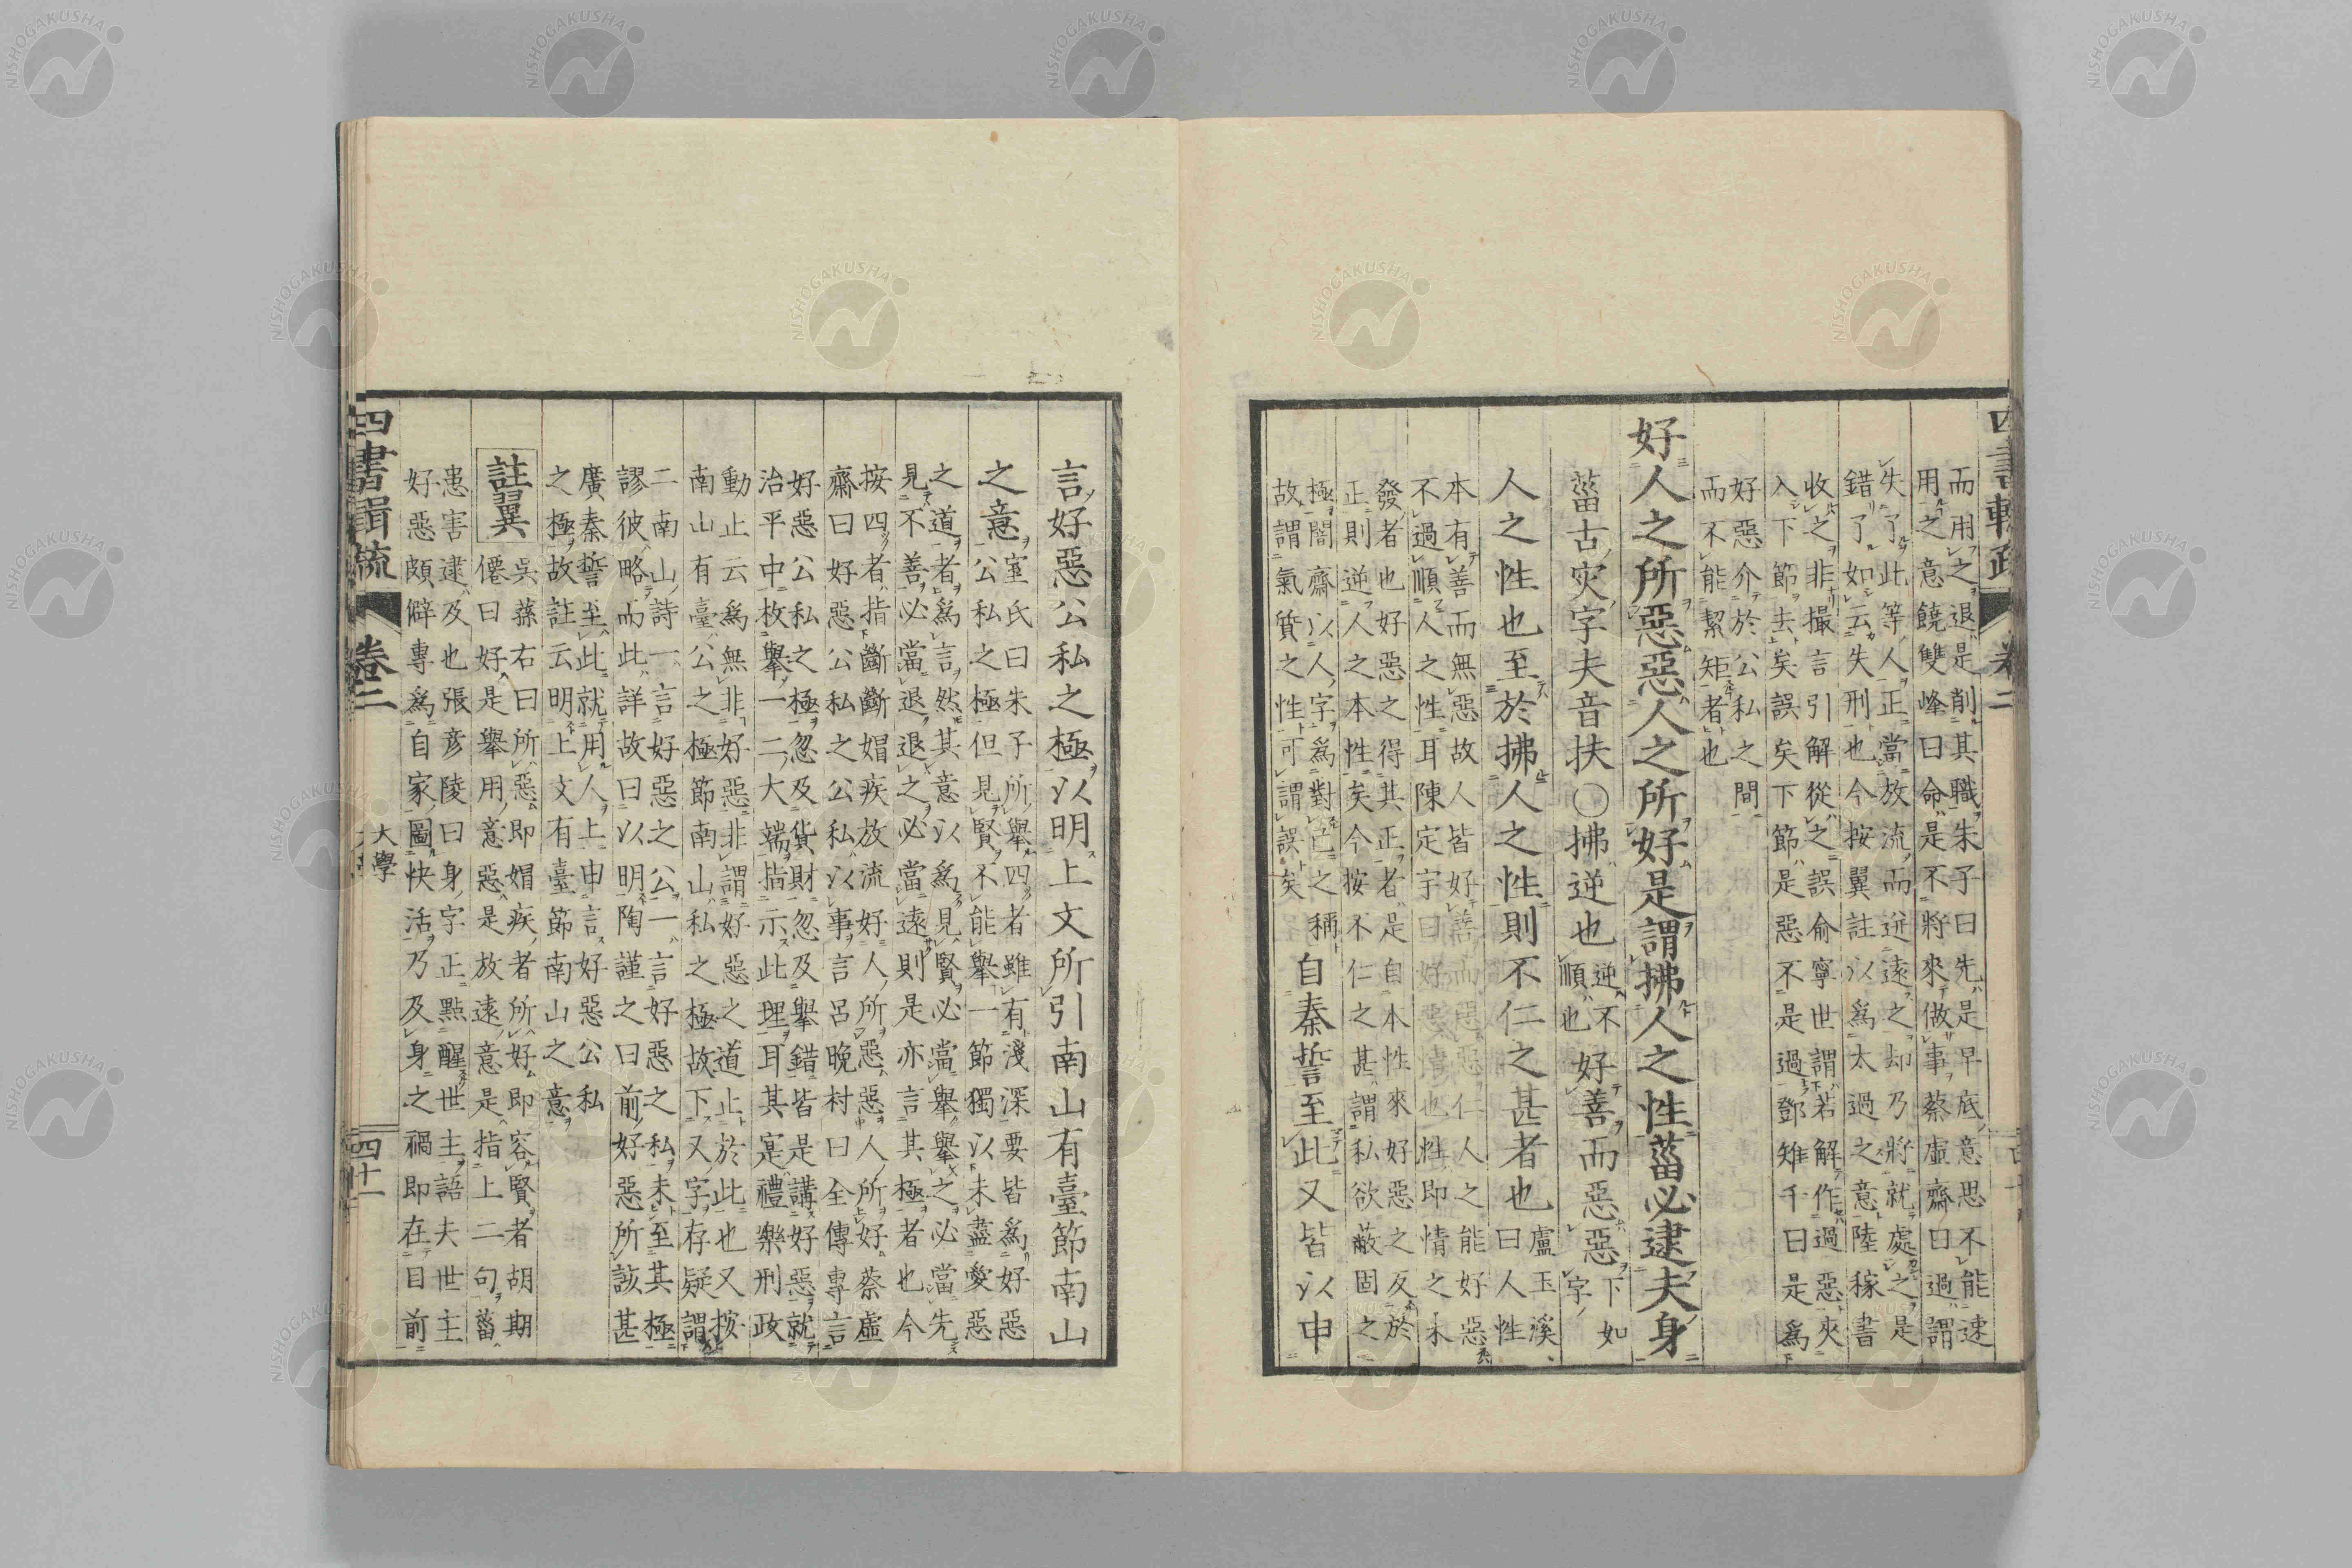 四書輯疏 卷二
而用之退是削其職朱子曰先是早底意思不能速
用之意饒雙峰曰命是不將來做事蔡虛齋曰過謂
失了此等人正當放流而迸遠之却乃將就處之是
錯了如云失刑也今按翼註以爲太過之意陸稼書
收之非撮言引解從之誤俞寧世謂若解作過惡夾
入下節去矣誤矣下節是惡不是過鄧雉千曰是爲
好惡介於公私之間
而不能絜矩者也
好人之所惡惡人之所好是謂拂人之性菑必逮夫身
菑古灾字夫音扶〇拂逆也
逆不
順也
好善而惡惡
下如
字
人之性也至於拂人之性則不仁之甚者也
盧玉溪
曰人性
本有善而無惡故人皆好善而惡惡仁人之能好惡
不過順人之性耳陳定宇曰好惡情也性即情之未
發者也好惡之得其正者是自本性來好惡之反於
正則逆人之本性矣今按不仁之甚謂私欲蔽固之
極闇齋以人字爲對己之稱
故謂氣質之性可謂誤矣
自秦誓至此又皆以申
言好惡公私之極以明上文所引南山有臺節南山
之意
室氏曰朱子所舉四者雖有淺深要皆爲好惡
公私之極但見賢不能舉一節獨以未盡愛惡
之道者爲言然其意以爲見賢必當舉舉之必當先
見不善必當退退之必當遠則是亦言其極者也今
按四者指斷斷媢疾放流好人所惡惡人所好蔡虛
齋曰好惡公私之公私以事言呂晚村曰全傳專言
好惡公私之極忽及貨財忽及舉錯皆是講好惡就
治平中枚舉一二大端指示此理耳其寔禮樂刑政
動止云爲無非好惡非謂好惡之道止於此也又按
南山有臺公之極節南山私之極故下又字存疑謂
二南山詩一言好惡之公一言好惡之私未至其極
謬彼略而此詳故曰以明陶謹之曰前好惡所該甚
廣秦誓至此就用人上申言好惡公私
之極故註云明上文有臺節南山之意
註翼
吳蓀右曰所惡即媢疾者所好即容賢者胡期
僊曰好是舉用意惡是放遠意是指上二句菑
患害逮及也張彥陵曰身字正點醒世主語夫世主
好惡頗僻專爲自家圖快活乃及身之禍即在目前
四書輯疏 卷二
大學
四十一